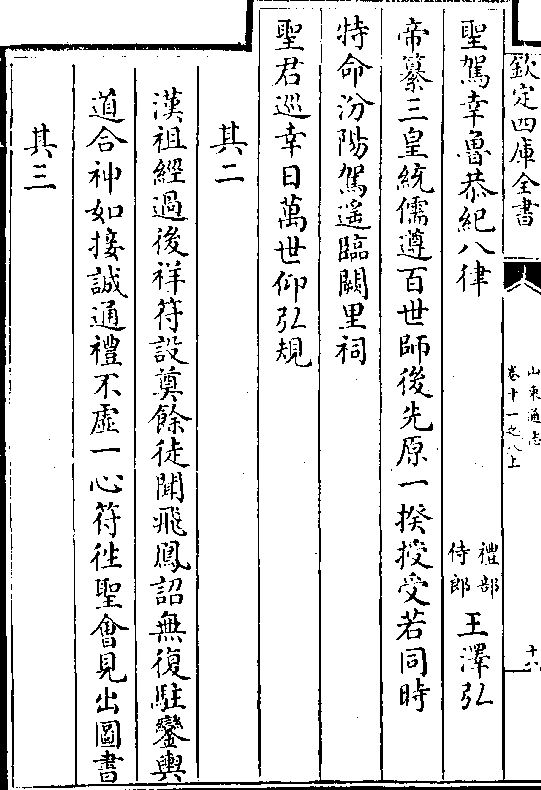 欽定四庫全書
山東通志
卷十一之八上
十八
聖駕幸魯恭紀八律
禮部
侍郎
王澤弘
帝纂三皇統儒遵百世師後先原一揆授受若同時
特命汾陽駕遙臨闕里祠
聖君巡幸日萬世仰弘規
其二
漢祖經過後祥符設奠餘徒聞飛鳳詔無復駐鑾輿
道合神如接誠通禮不虛一心符徃聖會見出圖書
其三